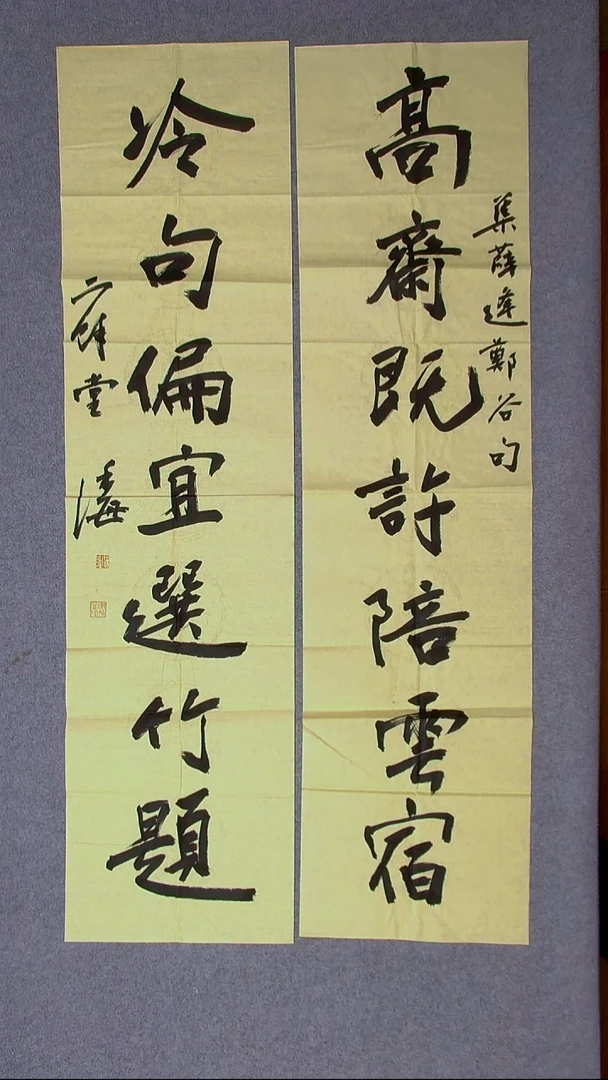 高齋既許陪雲宿
集薛逢鄭谷句
冷句偏宜選竹題
堂